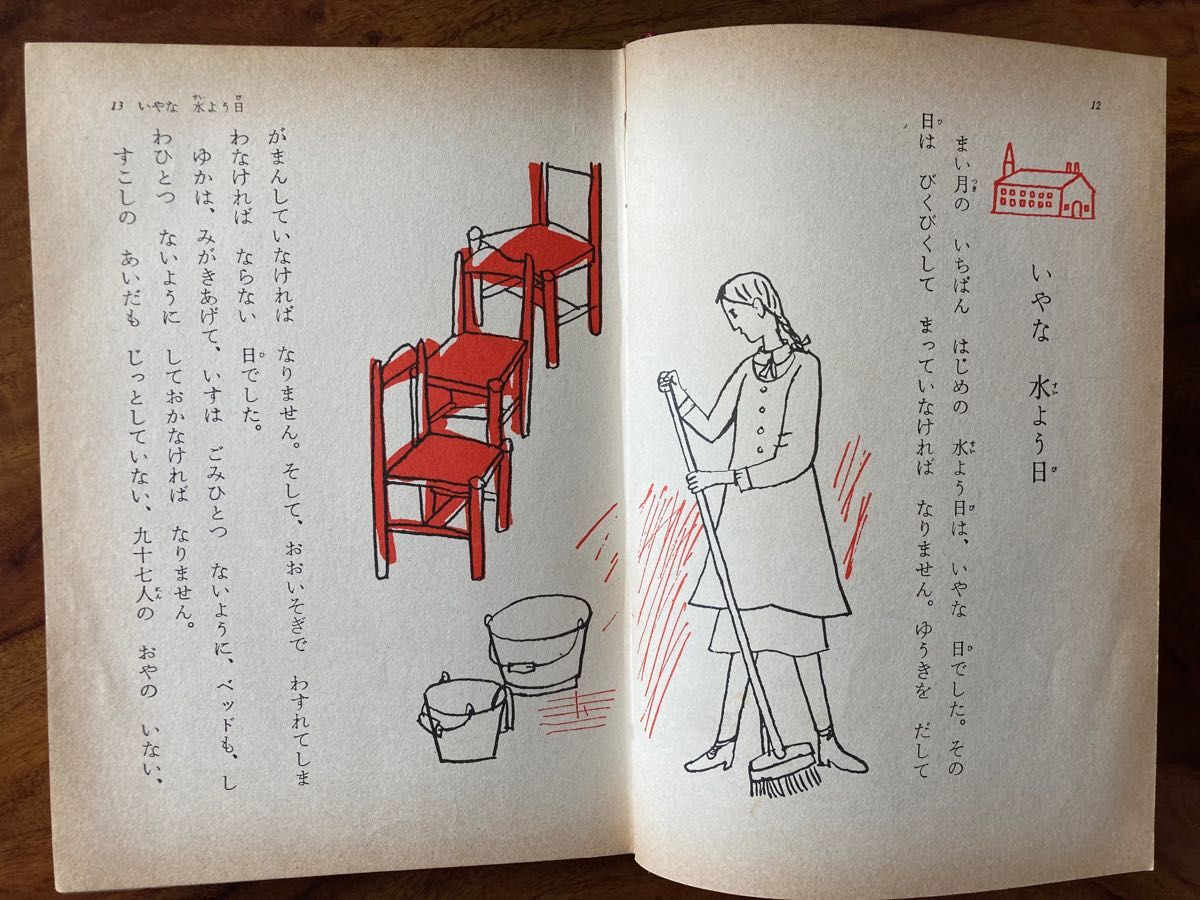 12
いやな 水よう日
まい月の いちばん はじめの 水よう日は、いやな 日でした。その
日は びくびくして まっていなければ なりません。ゆうきを だして
13 いやな 水よう日
がまんしていなければ なりません。そして、おおいそぎで わすれてしま
わなければ ならない 日でした。
ゆかは、みがきあげて、いすは ごみひとつ ないように、ベッドも、し
わひとつ ないように しておかなければ なりません。
すこしの あいだも じっとしていない、九十七人の おやの いない、